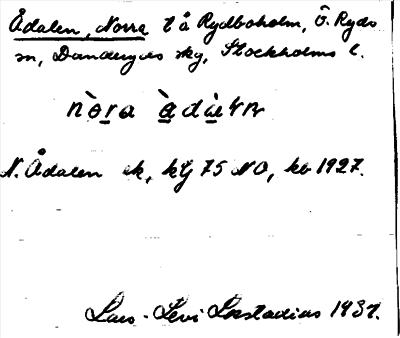 Ådalen, Norra t å Rydboholm, Ö. Ryds
sn, Danderyds skg, Stockholms l.
nòra àdàln
N. Ådalen ek, kbl 75 NO, kb 1927.
Lars-Levi Læstadius 1937.